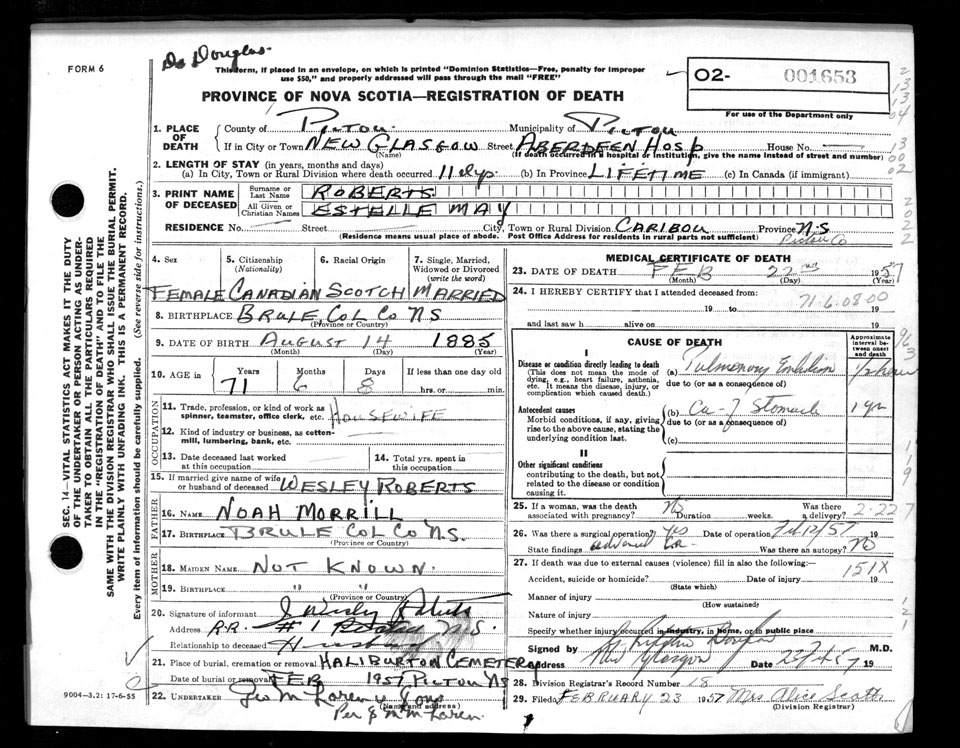 Dr Douglas
FORM 6
This form, if placed in an envelope, on which is printed "Dominion Statistics—Free, penalty for improper
use $50," and properly addressed will pass through the mail "FREE"
PROVINCE OF NOVA SCOTIA—REGISTRATION OF DEATH
02- 001653
For use of the Department only
1. PLACE OF DEATH
County of Pictou Municipality of Pictou
If in City or Town NEW GLASGOW Street ABERDEEN HOSP House No.
(Name) (If death occurred in a hospital or institution, give the name instead of street and number)
2. LENGTH OF STAY (in years, months and days)
(a) In City, Town or Rural Division where death occurred 11 dys (b) In Province LIFETIME (c) In Canada (if immigrant)
3. PRINT NAME OF DECEASED
Surname or Last Name ROBERTS
All Given or Christian Names ESTELLE MAY
RESIDENCE No. Street City, Town or Rural Division CARIBOU Province N.S
(Residence means usual place of abode. Post Office Address for residents in rural parts not sufficient) Pictou Co
4. Sex 5. Citizenship (Nationality) 6. Racial Origin 7. Single, Married, Widowed or Divorced (write the word)
FEMALE CANADIAN SCOTCH MARRIED
8. BIRTHPLACE BRULE COL CO NS
(Province or Country)
9. DATE OF BIRTH AUGUST 14 1885
(Month) (Day) (Year)
10. AGE IN Years Months Days If less than one day old
71 6 8 hrs. or min.
OCCUPATION
11. Trade, profession, or kind of work as spinner, teamster, office clerk, etc. HOUSEWIFE
12. Kind of industry or business, as cotton-mill, lumbering, bank, etc.
13. Date deceased last worked at this occupation
14. Total yrs. spent in this occupation
15. If married give name of wife or husband of deceased WESLEY ROBERTS
FATHER
16. NAME NOAH MORRILL
17. BIRTHPLACE BRULE COL CO N.S.
(Province or Country)
MOTHER
18. MAIDEN NAME NOT KNOWN.
19. BIRTHPLACE " "
(Province or Country)
20. Signature of informant J Wesley Roberts
Address R.R. #1 Pictou N.S
Relationship to deceased Husband
21. Place of burial, cremation or removal HALIBURTON CEMETERY
Date of burial or removal FEB 1957 PICTOU NS
22. UNDERTAKER Geo McLaren & Sons
(Name and address)
Per McLaren.
9004—3.2: 17-6-55
SEC. 14—VITAL STATISTICS ACT MAKES IT THE DUTY
OF THE UNDERTAKER OR PERSON ACTING AS UNDER-
TAKER TO OBTAIN ALL THE PARTICULARS REQUIRED
IN THE "REGISTRATION OF DEATH" AND TO FILE THE
SAME WITH THE DIVISION REGISTRAR WHO SHALL ISSUE THE BURIAL PERMIT.
WRITE PLAINLY WITH UNFADING INK. THIS IS A PERMANENT RECORD.
Every item of information should be carefully supplied. (See reverse side for instructions.)
MEDICAL CERTIFICATE OF DEATH
23. DATE OF DEATH FEB 22nd 1957
(Month) (Day)
24. I HEREBY CERTIFY that I attended deceased from:
71.6.0800
19 to 19
and last saw h alive on 19
CAUSE OF DEATH
Approximate interval between onset and death
I
Disease or condition directly leading to death
(This does not mean the mode of dying, e.g., heart failure, asthenia, etc. It means the disease, injury, or complication which caused death.)
(a) Pulmonary Embolism 1/2 hour
due to (or as a consequence of)
Antecedent causes
Morbid conditions, if any, giving rise to the above cause, stating the underlying condition last.
(b) Ca of Stomach 1 yr
due to (or as a consequence of)
(c)
II
Other significant conditions
contributing to the death, but not related to the disease or condition causing it.
25. If a woman, was the death associated with pregnancy? No Duration weeks. Was there a delivery?
2-22-7
26. Was there a surgical operation? Yes Date of operation Feb 12/57 19
State findings advanced Ca. Was there an autopsy? No
27. If death was due to external causes (violence) fill in also the following:—
151X
Accident, suicide or homicide? Date of injury 19
(State which)
Manner of injury
(How sustained)
Nature of injury
Specify whether injury occurred in industry, in home, or in public place
Signed by M.D.
Address New Glasgow Date 19
28. Division Registrar's Record Number 18
29. Filed FEBRUARY 23 1957 Mrs. Alice Scott
(Division Registrar)